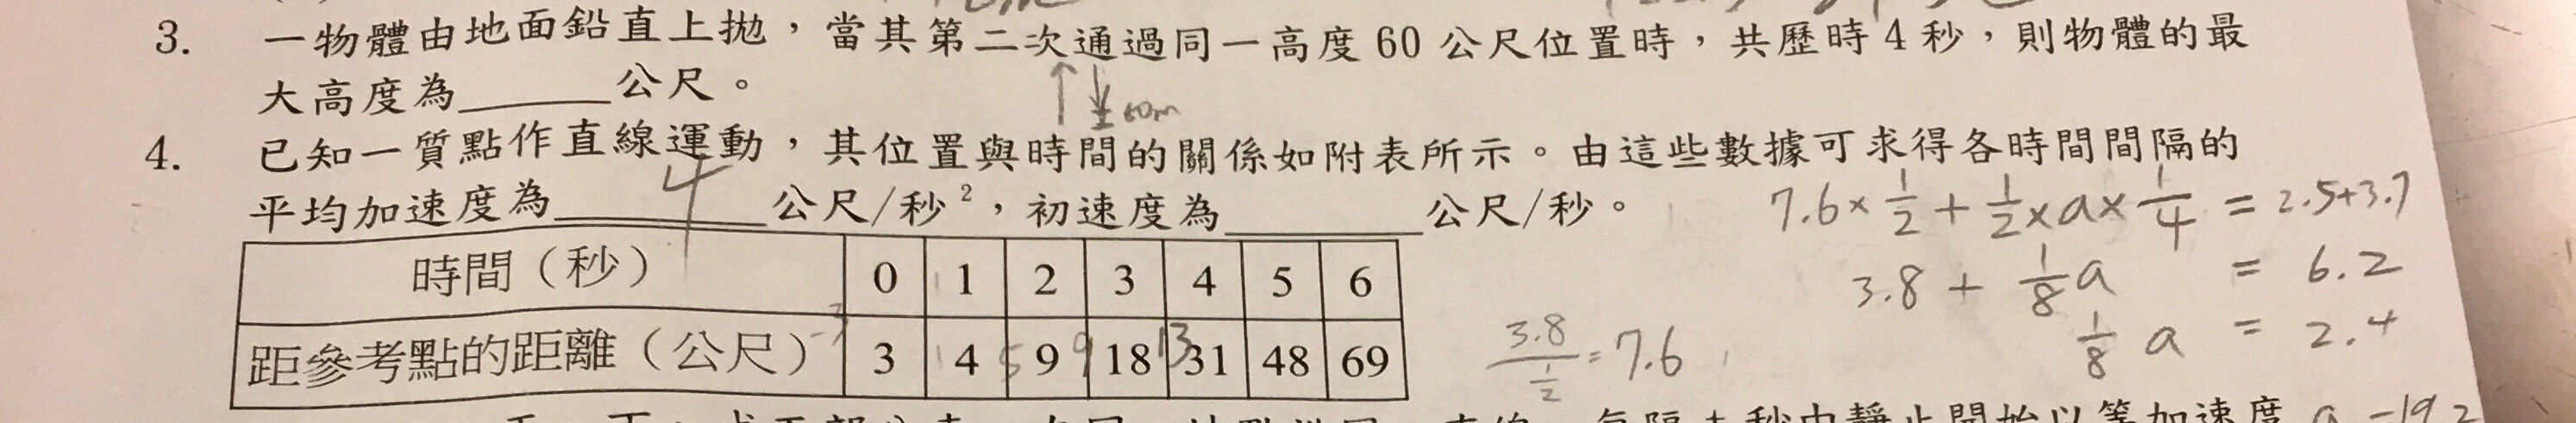 3. 一物體由地面鉛直上拋，當其第二次通過同一高度 60 公尺位置時，共歷時 4 秒，則物體的最
大高度為______公尺。
60m
4. 已知一質點作直線運動，其位置與時間的關係如附表所示。由這些數據可求得各時間間隔的
平均加速度為____4____公尺/秒²，初速度為________公尺/秒。
7.6×1/2+1/2×a×1/4=2.5+3.7
時間（秒） 0 1 2 3 4 5 6
3.8+1/8a=6.2
距參考點的距離（公尺） 3 1 4 5 9 9 18 13 31 48 69
3.8/(1/2)=7.6
1/8a=2.4